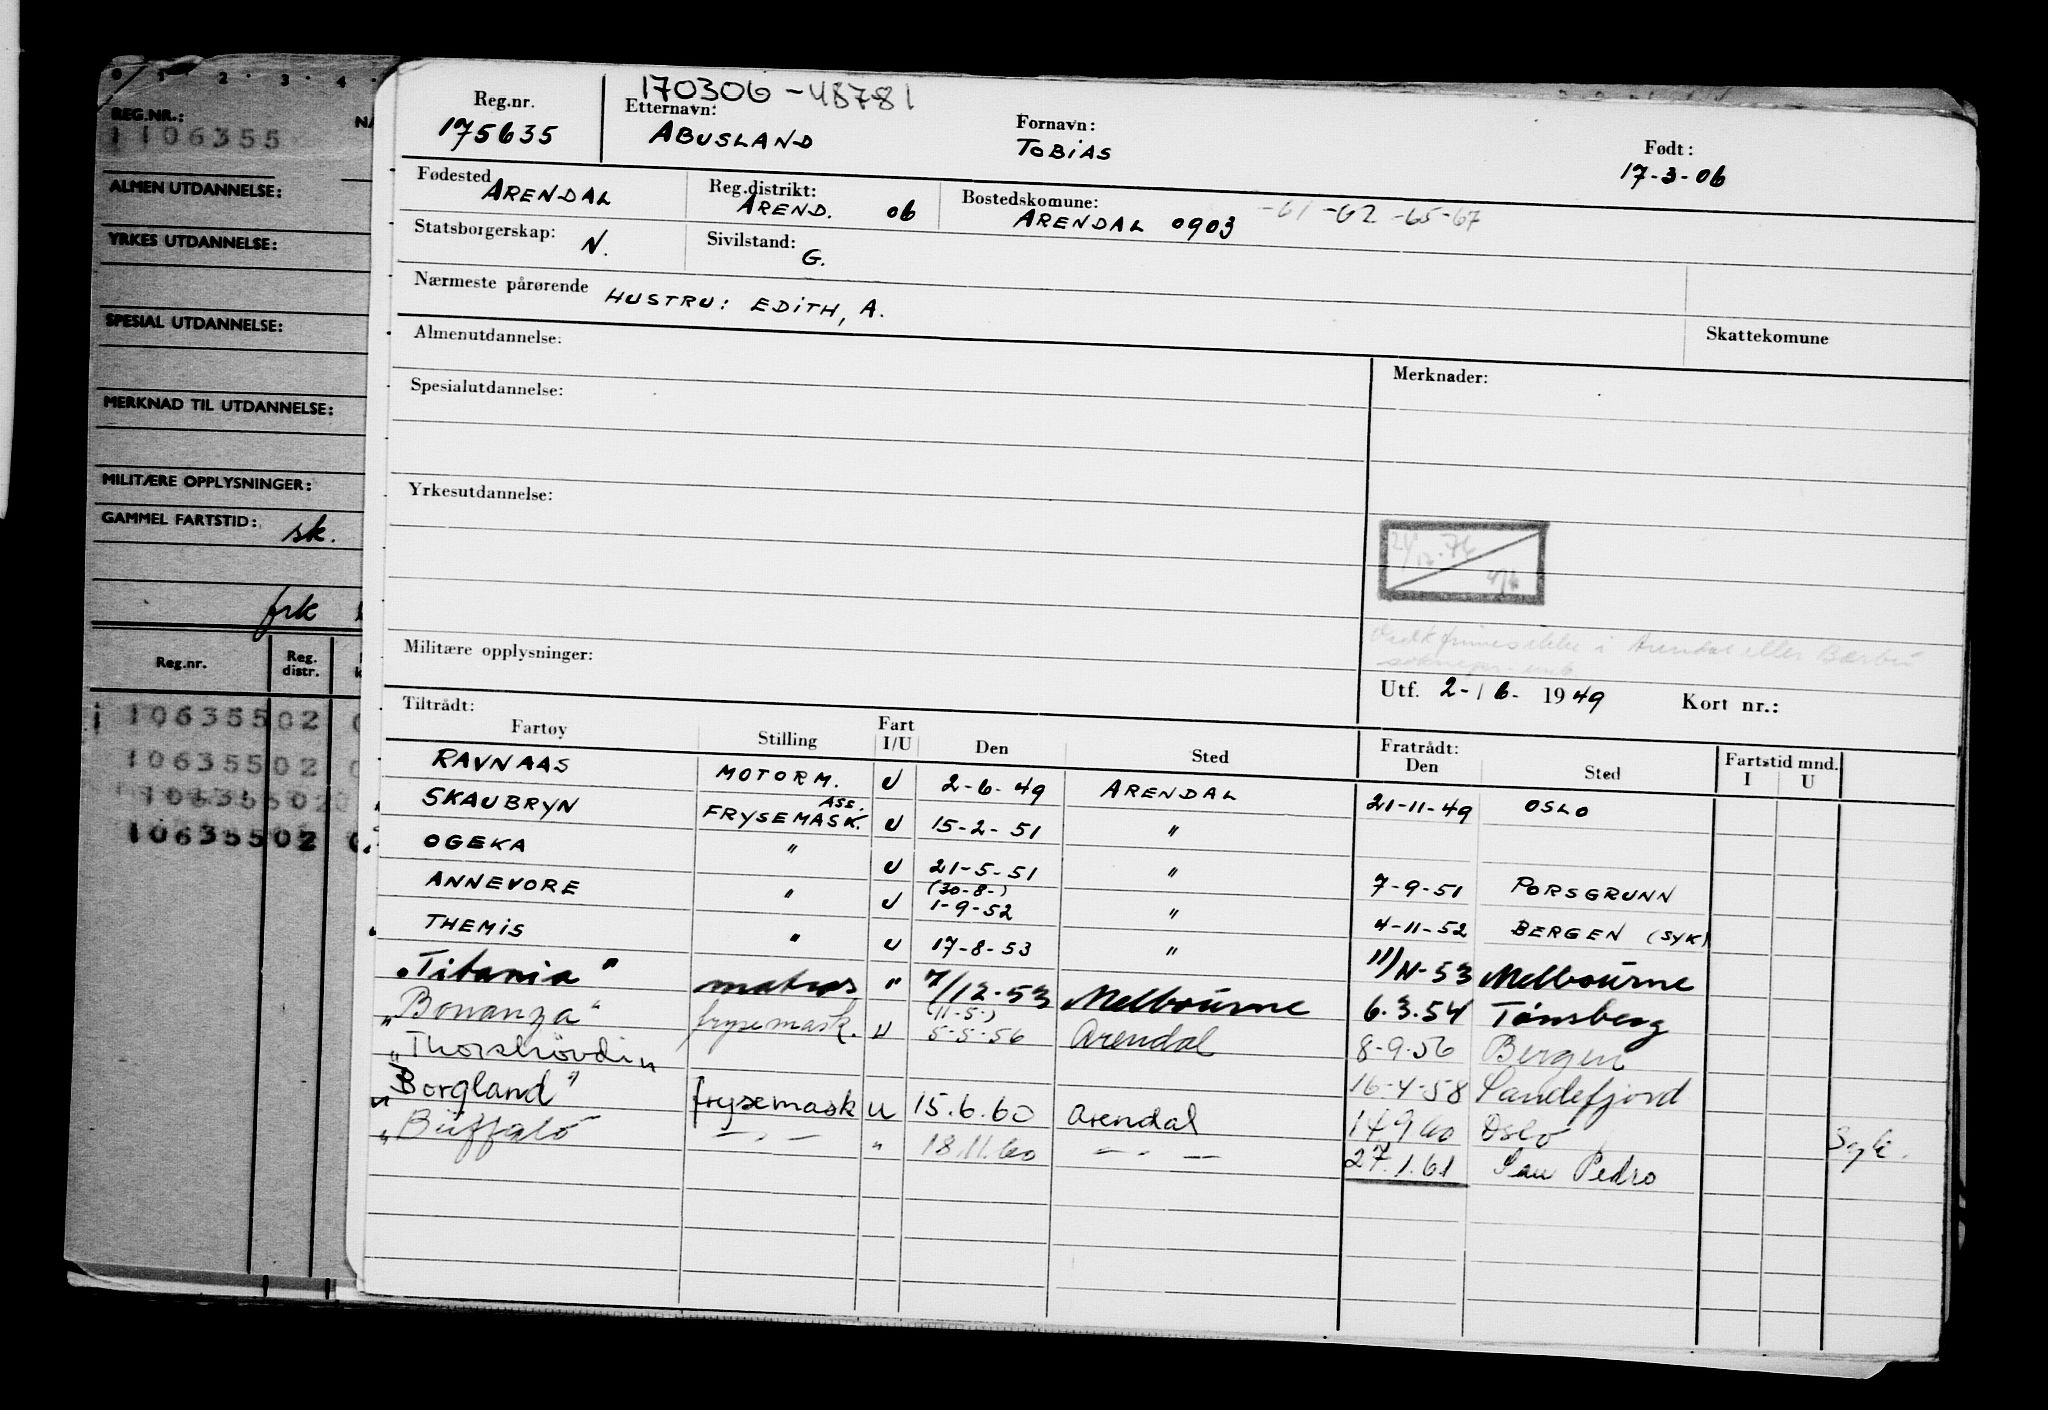 0 1 2 3 4
REG.NR.:
1106355
ALMEN UTDANNELSE:
YRKES UTDANNELSE:
SPESIAL UTDANNELSE:
MERKNAD TIL UTDANNELSE:
MILITÆRE OPPLYSNINGER:
GAMMEL FARTSTID: sk.
frk
Reg.nr. Reg. distr.
10635502
10635502
10635502
10635502
170306-48781
Reg.nr. Etternavn: Fornavn: Født:
175635 ABUSLAND TOBIAS 17-3-06
Fødested Reg.distrikt: Bostedskomune: -61 -62 -65-67
ARENDAL AREND. 06 ARENDAL 0903
Statsborgerskap: N. Sivilstand: G.
Nærmeste pårørende HUSTRU: EDITH, A.
Almenutdannelse: Skattekomune
Spesialutdannelse: Merknader:
Yrkesutdannelse:
Militære opplysninger:
Utf. 2-6-1949 Kort nr.:
Tiltrådt: Fratrådt:
Fartøy Stilling Fart I/U Den Sted Den Sted Fartstid mnd. I U
RAVNAAS MOTORM. U 2-6-49 ARENDAL 21-11-49 OSLO
SKAUBRYN ASS. FRYSEMASK. U 15-2-51 "
OGEKA " U 21-5-51 " 7-9-51 PORSGRUNN
ANNEVORE " U (30-8-) 1-9-52 " 4-11-52 BERGEN (SYK)
THEMIS " U 17-8-53 " 11/11-53 Melbourne
"Titania" matros " 7/12-53 Melbourne 6.3.54 Tønsberg
"Bonanza" frysemask. U (11-5-) 5-5-56 Arendal 8-9-56 Bergen
"Thorshövdi" 16-4-58 Sandefjord
"Borgland" frysemask U 15.6.60 Arendal 14.9.60 Oslo
"Buffalo — " — " 18.11.60 — " — 27.1.61 San Pedro